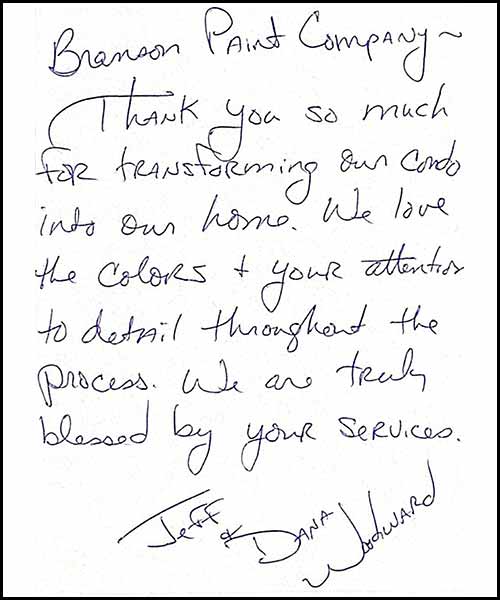 Branson Paint Company ~
Thank you so much
for transforming our condo
into our home. We love
the colors + your attention
to detail throughout the
process. We are truly
blessed by your services.
Jeff & Dana Woodward